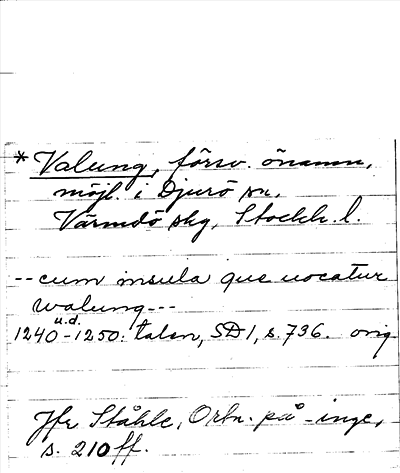 * Valung, försv. önamn,
möjl. i Djurö sn,
Värmdö skg, Stockh. l.
-- cum insula que uocatur
walung ---
u.d.
1240-1250: talen, SD 1, s. 736. orig
Jfr Ståhle, Ortn. på -inge,
s. 210 ff.